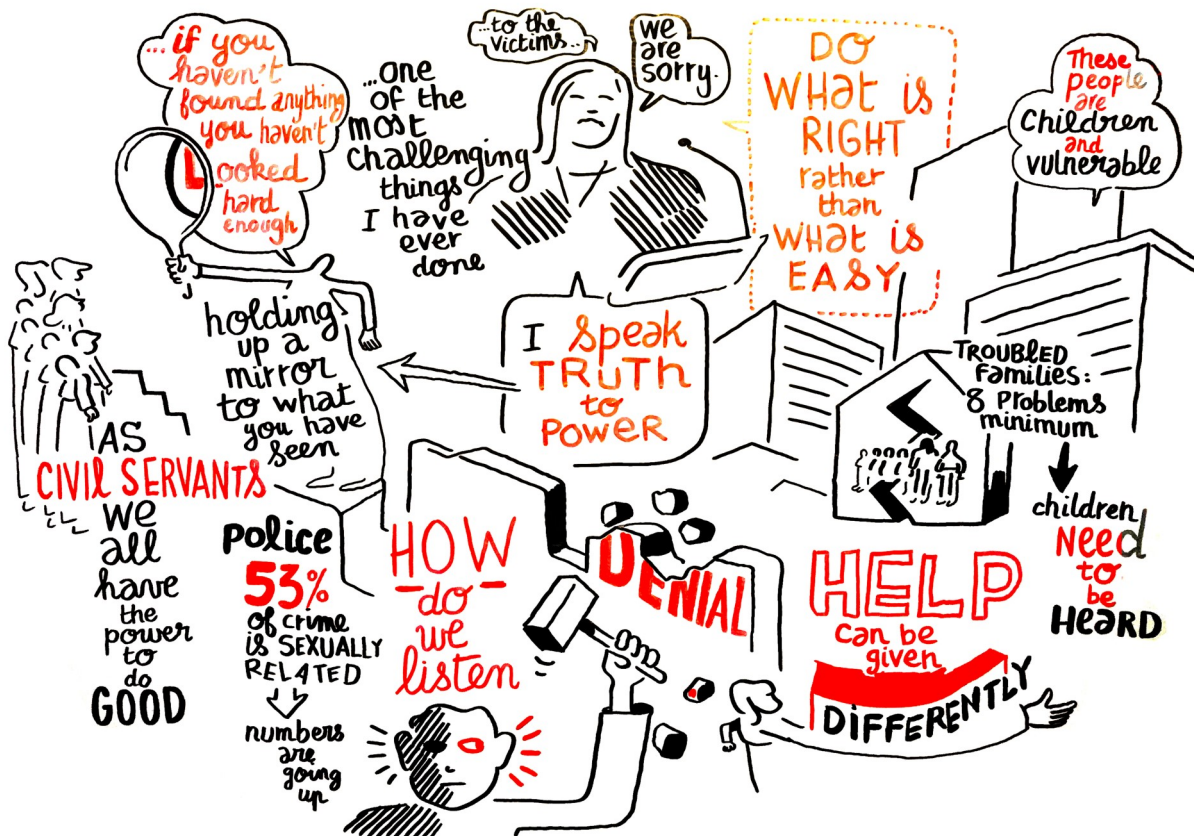 ...if you
haven't
found anything
you haven't
Looked
hard
enough
...one
of the
most
challenging
things
I have
ever
done
...to the
victims...
we
are
sorry.
DO
WHat is
RIGHT
rather
than
WHat is
EASY
These
people
are
Children
and
vulnerable
holding
up a
mirror
to what
you have
seen
I speak
TRuTh
to
POWER
TROUBLED
Families:
8 Problems
minimum
children
Need
to
be
HeaRD
AS
CIVIL SERVANTS
we
all
have
the
power
to
do
GOOD
Police
53%
of crime
is SEXUALLY
RELATED
numbers
are
going
up
HOW
do
we
listen
DENIAL
HELP
can be
given
DIFFERENTLY